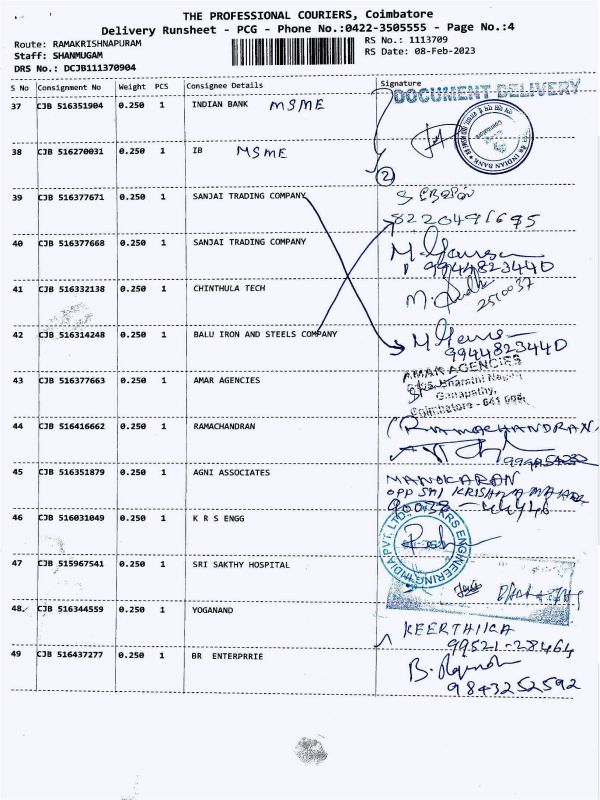 THE PROFESSIONAL COURIERS, Coimbatore
Delivery Runsheet - PCG - Phone No.:0422-3505555 - Page No.:4
Route: RAMAKRISHNAPURAM
Staff: SHANMUGAM
DRS No.: DCJB111370904
RS No.: 1113709
RS Date: 08-Feb-2023
S No Consignment No Weight PCS Consignee Details Signature
DOCUMENT DELIVERY
37 CJB 516351904 0.250 1 INDIAN BANK MSME
INDIAN BANK
38 CJB 516270031 0.250 1 IB MSME
2
39 CJB 516377671 0.250 1 SANJAI TRADING COMPANY
8220491695
40 CJB 516377668 0.250 1 SANJAI TRADING COMPANY
9944823440
41 CJB 516332138 0.250 1 CHINTHULA TECH
2510037
42 CJB 516314248 0.250 1 BALU IRON AND STEELS COMPANY
9944823440
43 CJB 516377663 0.250 1 AMAR AGENCIES
AMAR AGENCIES
Bharathi Nagar
Ganapathy,
Coimbatore - 641 006.
44 CJB 516416662 0.250 1 RAMACHANDRAN
RAMACHANDRAN
45 CJB 516351879 0.250 1 AGNI ASSOCIATES
MANOKARAN
OPP SRI KRISHNA
46 CJB 516031049 0.250 1 K R S ENGG
KRS ENGINEERING INDIA PVT. LTD.
47 CJB 515967541 0.250 1 SRI SAKTHY HOSPITAL
48 CJB 516344559 0.250 1 YOGANAND
KEERTHIKA
99521-28464
49 CJB 516437277 0.250 1 BR ENTERPRRIE
9843252592